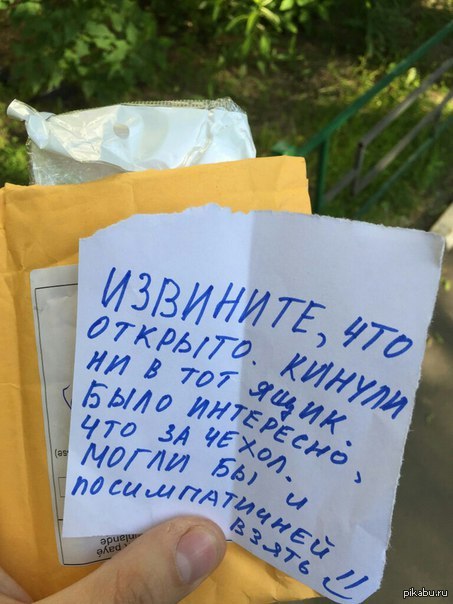 ИЗВИНИТЕ, ЧТО
ОТКРЫТО. КИНУЛИ
НИ В ТОТ ЯЩИК.
БЫЛО ИНТЕРЕСНО,
ЧТО ЗА ЧЕХОЛ.
МОГЛИ БЫ И
ПОСИМПАТИЧНЕЙ
ВЗЯТЬ!!
payé
inlande
pikabu.ru